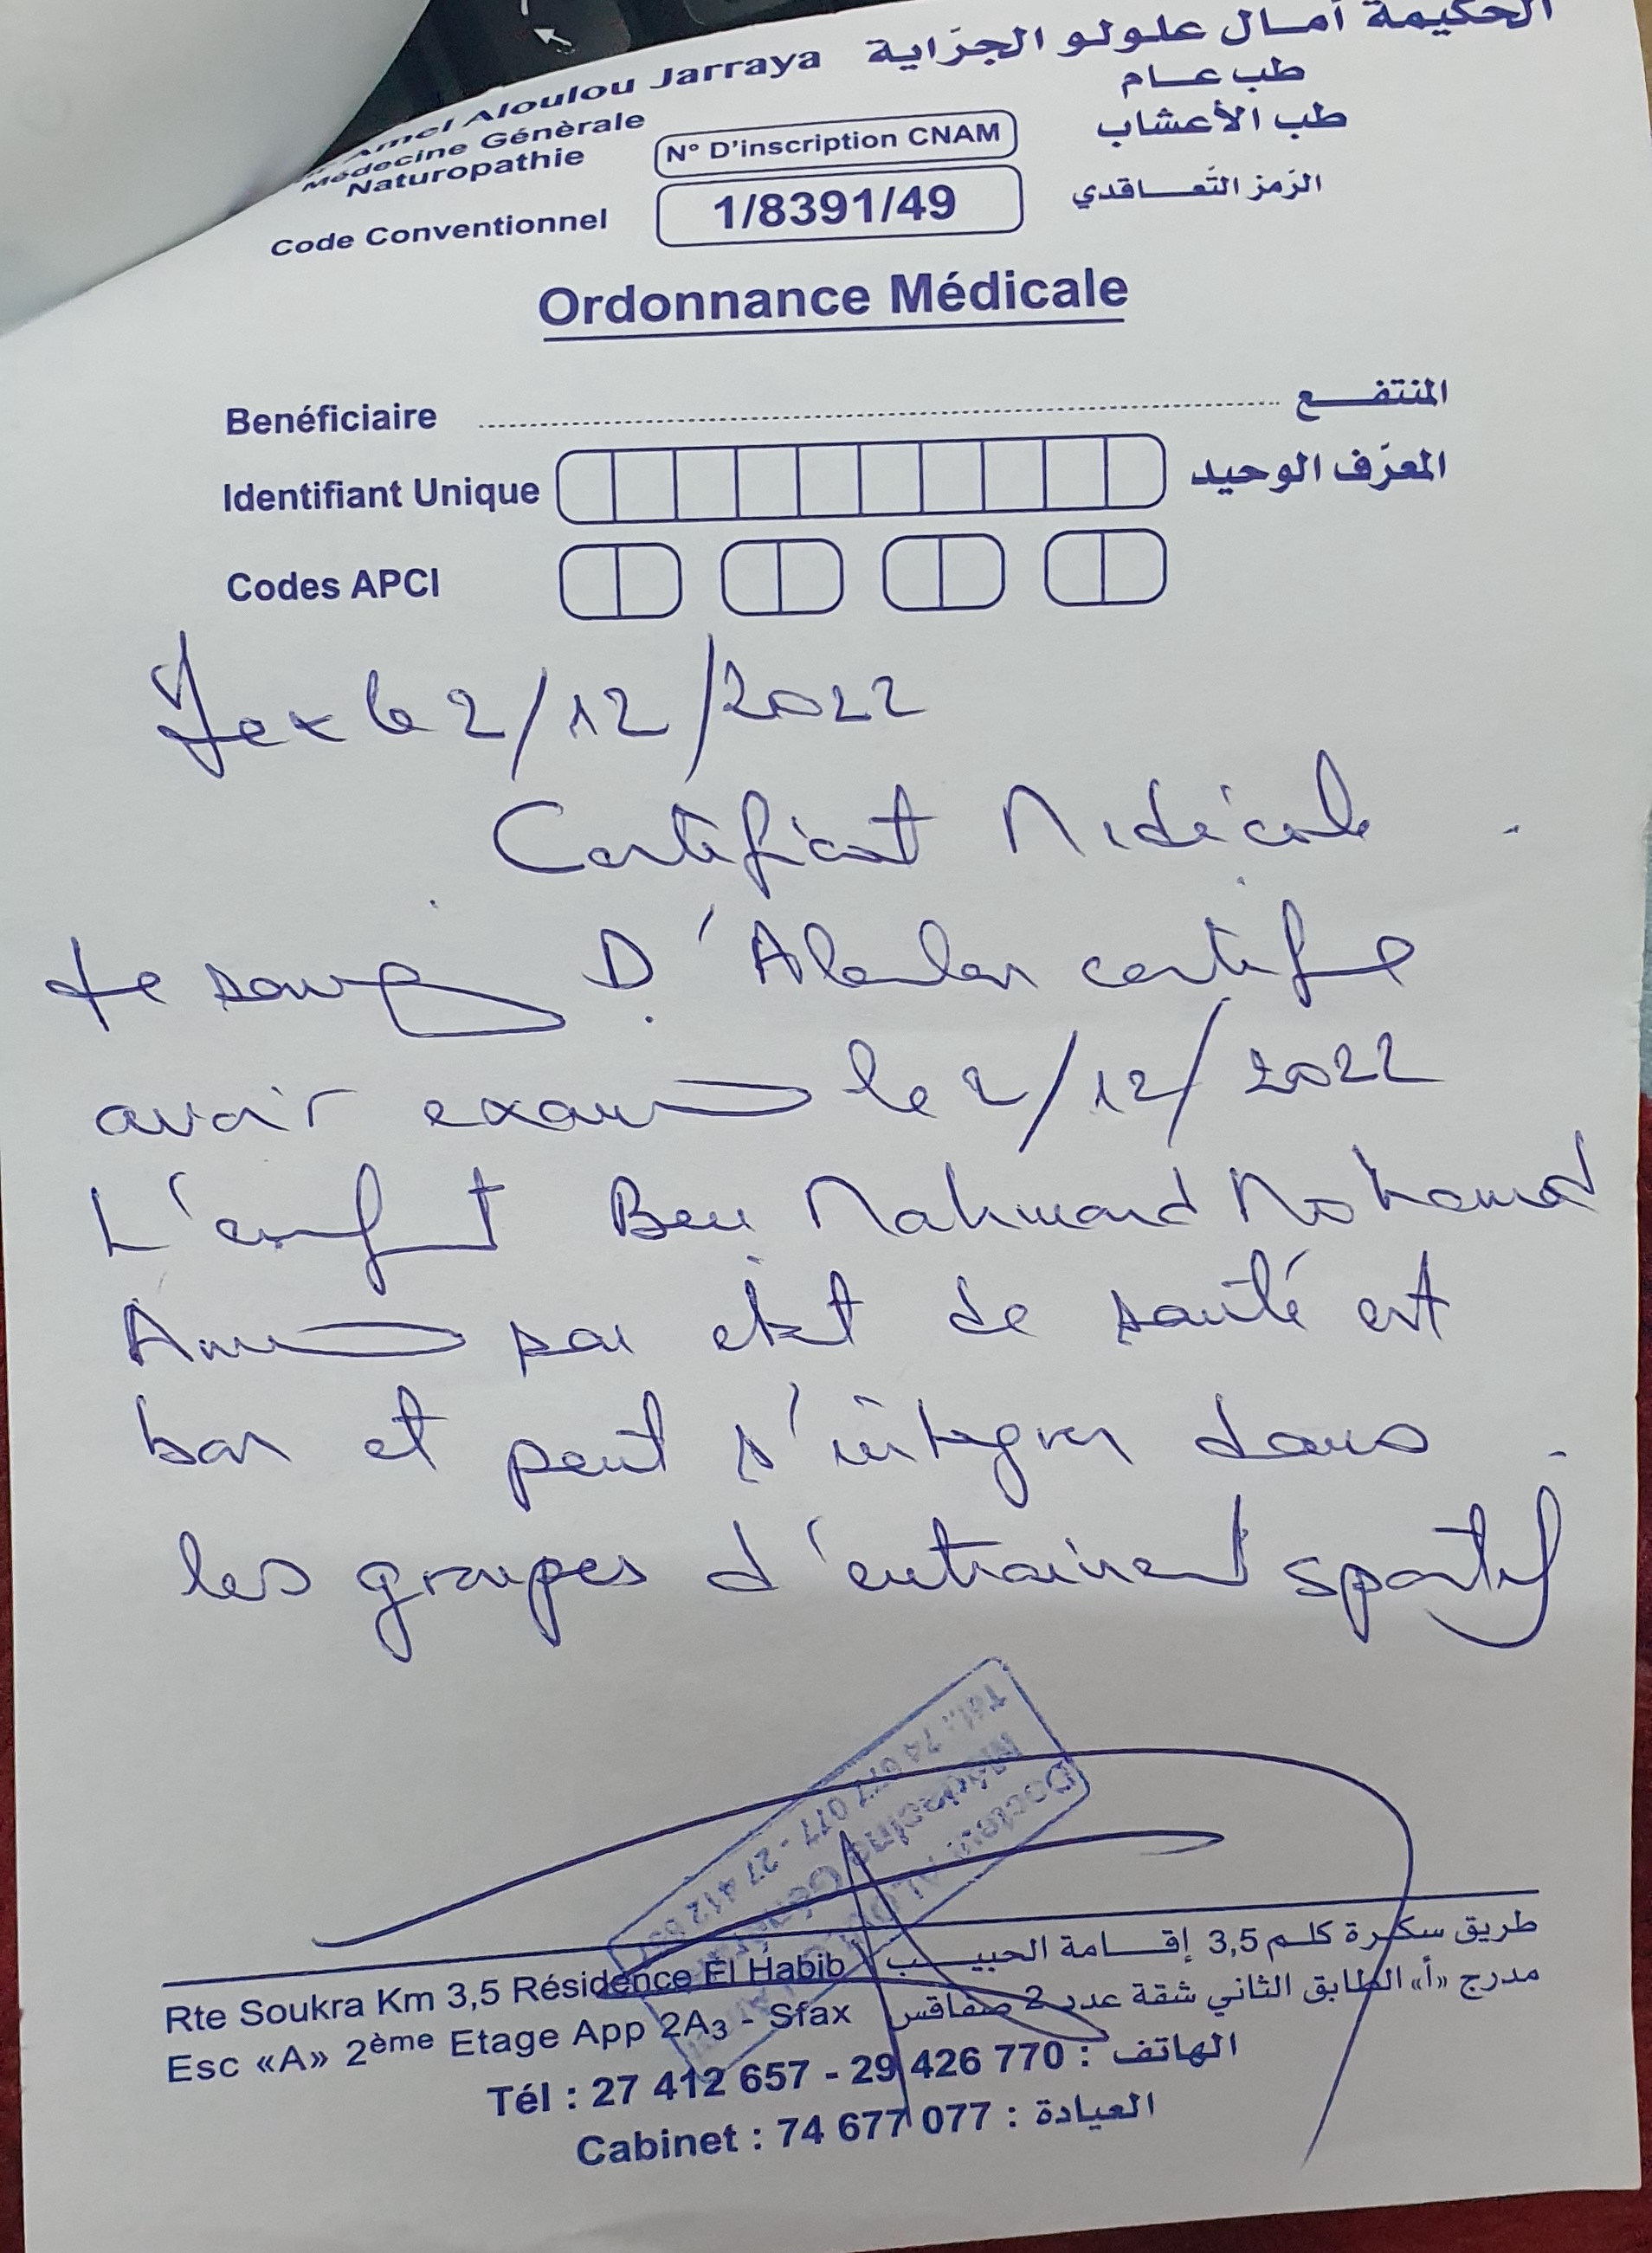 الحكيمة آمال علولو الجرّاية
Amel Aloulou Jarraya
طب عام
Médecine Génèrale
طب الأعشاب
Naturopathie
N° D'inscription CNAM
الرّمز التّعاقدي
Code Conventionnel
1/8391/49
Ordonnance Médicale
Benéficiaire المنتفع
Identifiant Unique المعرّف الوحيد
Codes APCI
le 2/12/2022
Certificat Médicale
Je soussigné D' Aloulou certifie
avoir examiné le 2/12/2022
L'enfant Ben Mahmoud Mohamed
état de santé est
bon et peut s'intégrer dans
les groupes d'entrainement sportif
Docteur
Médecine Générale
Tél.: 74 677 077 - 27 412
Rte Soukra Km 3,5 Résidence El Habib طريق سكرة كلم 3,5 إقامة الحبيب
Esc «A» 2ème Etage App 2A3 - Sfax مدرج «أ» الطابق الثاني شقة عدد 2 صفاقس
Tél : 27 412 657 - 29 426 770 : الهاتف
Cabinet : 74 677 077 : العيادة